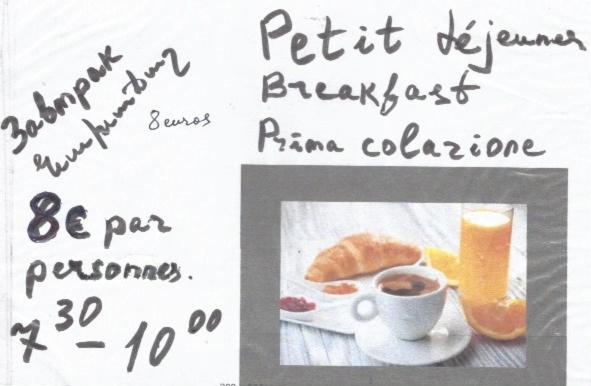 Petit déjeuner
Breakfast
Prima colazione
Завтрак
8 euros
8€ par
personnes.
7 30 - 10 00